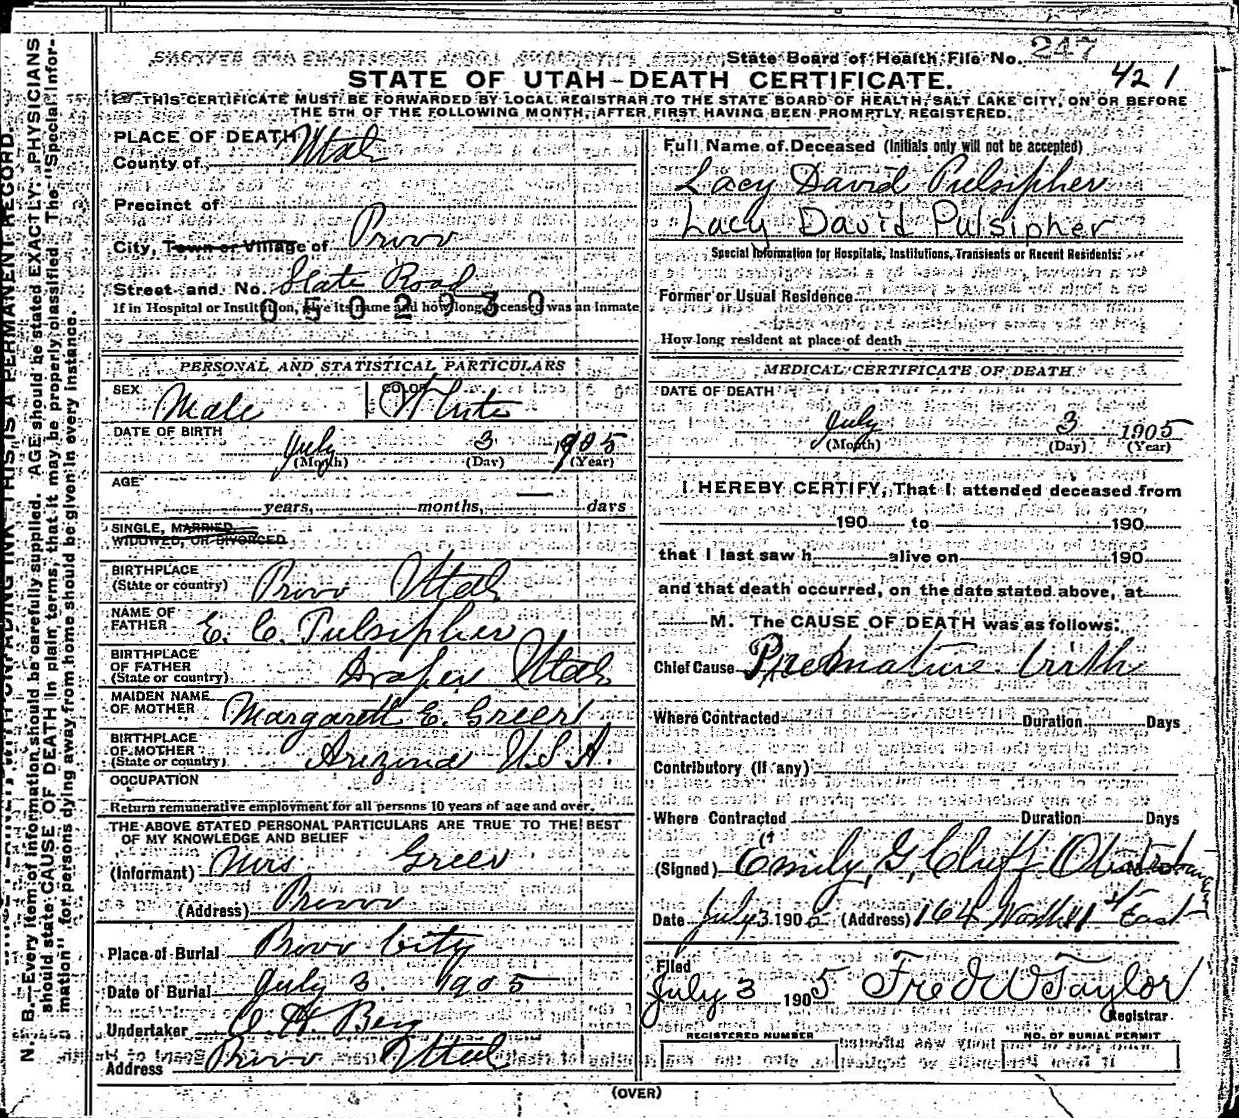 State Board of Health File No. 247
421
STATE OF UTAH—DEATH CERTIFICATE.
THIS CERTIFICATE MUST BE FORWARDED BY LOCAL REGISTRAR TO THE STATE BOARD OF HEALTH, SALT LAKE CITY, ON OR BEFORE
THE 5TH OF THE FOLLOWING MONTH, AFTER FIRST HAVING BEEN PROMPTLY REGISTERED.
N. B.—Every item of information should be carefully supplied. AGE should be stated EXACTLY. PHYSICIANS
should state CAUSE OF DEATH in plain terms, that it may be properly classified. The "Special Infor-
mation" for persons dying away from home should be given in every instance.
PLACE OF DEATH
County of Utah
Precinct of
City, Town or Village of Provo
Street and No. State Road
If in Hospital or Institution, give its name and how long deceased was an inmate
0502930
PERSONAL AND STATISTICAL PARTICULARS
SEX Male COLOR White
DATE OF BIRTH July 3 1905
(Month) (Day) (Year)
AGE
years, months, days
SINGLE, MARRIED
WIDOWED, OR DIVORCED
BIRTHPLACE
(State or country) Provo Utah
NAME OF
FATHER E. C. Pulsipher
BIRTHPLACE
OF FATHER
(State or country) Draper Utah
MAIDEN NAME
OF MOTHER Margareth E. Greer
BIRTHPLACE
OF MOTHER
(State or country) Arizona U.S.A.
OCCUPATION
Return remunerative employment for all persons 10 years of age and over.
THE ABOVE STATED PERSONAL PARTICULARS ARE TRUE TO THE BEST
OF MY KNOWLEDGE AND BELIEF
(Informant) Mrs Greer
(Address) Provo
Place of Burial Provo City
Date of Burial July 3. 1905
Undertaker O. H. Berg
Address Provo Utah
Full Name of Deceased (Initials only will not be accepted)
Lacy David Pulsipher
Lacy David Pulsipher
Special Information for Hospitals, Institutions, Transients or Recent Residents:
Former or Usual Residence
How long resident at place of death
MEDICAL CERTIFICATE OF DEATH
DATE OF DEATH
July 3 1905
(Month) (Day) (Year)
I HEREBY CERTIFY, That I attended deceased from
190 to 190
that I last saw h alive on 190
and that death occurred, on the date stated above, at
M. The CAUSE OF DEATH was as follows:
Chief Cause Premature birth
Where Contracted Duration Days
Contributory (If any)
Where Contracted Duration Days
(Signed) Emily G. Cluff
Date July 3 1905 (Address) 164 North 11 st East
Filed
July 3 1905 Fred W Taylor
Registrar.
REGISTERED NUMBER NO. OF BURIAL PERMIT
(OVER)